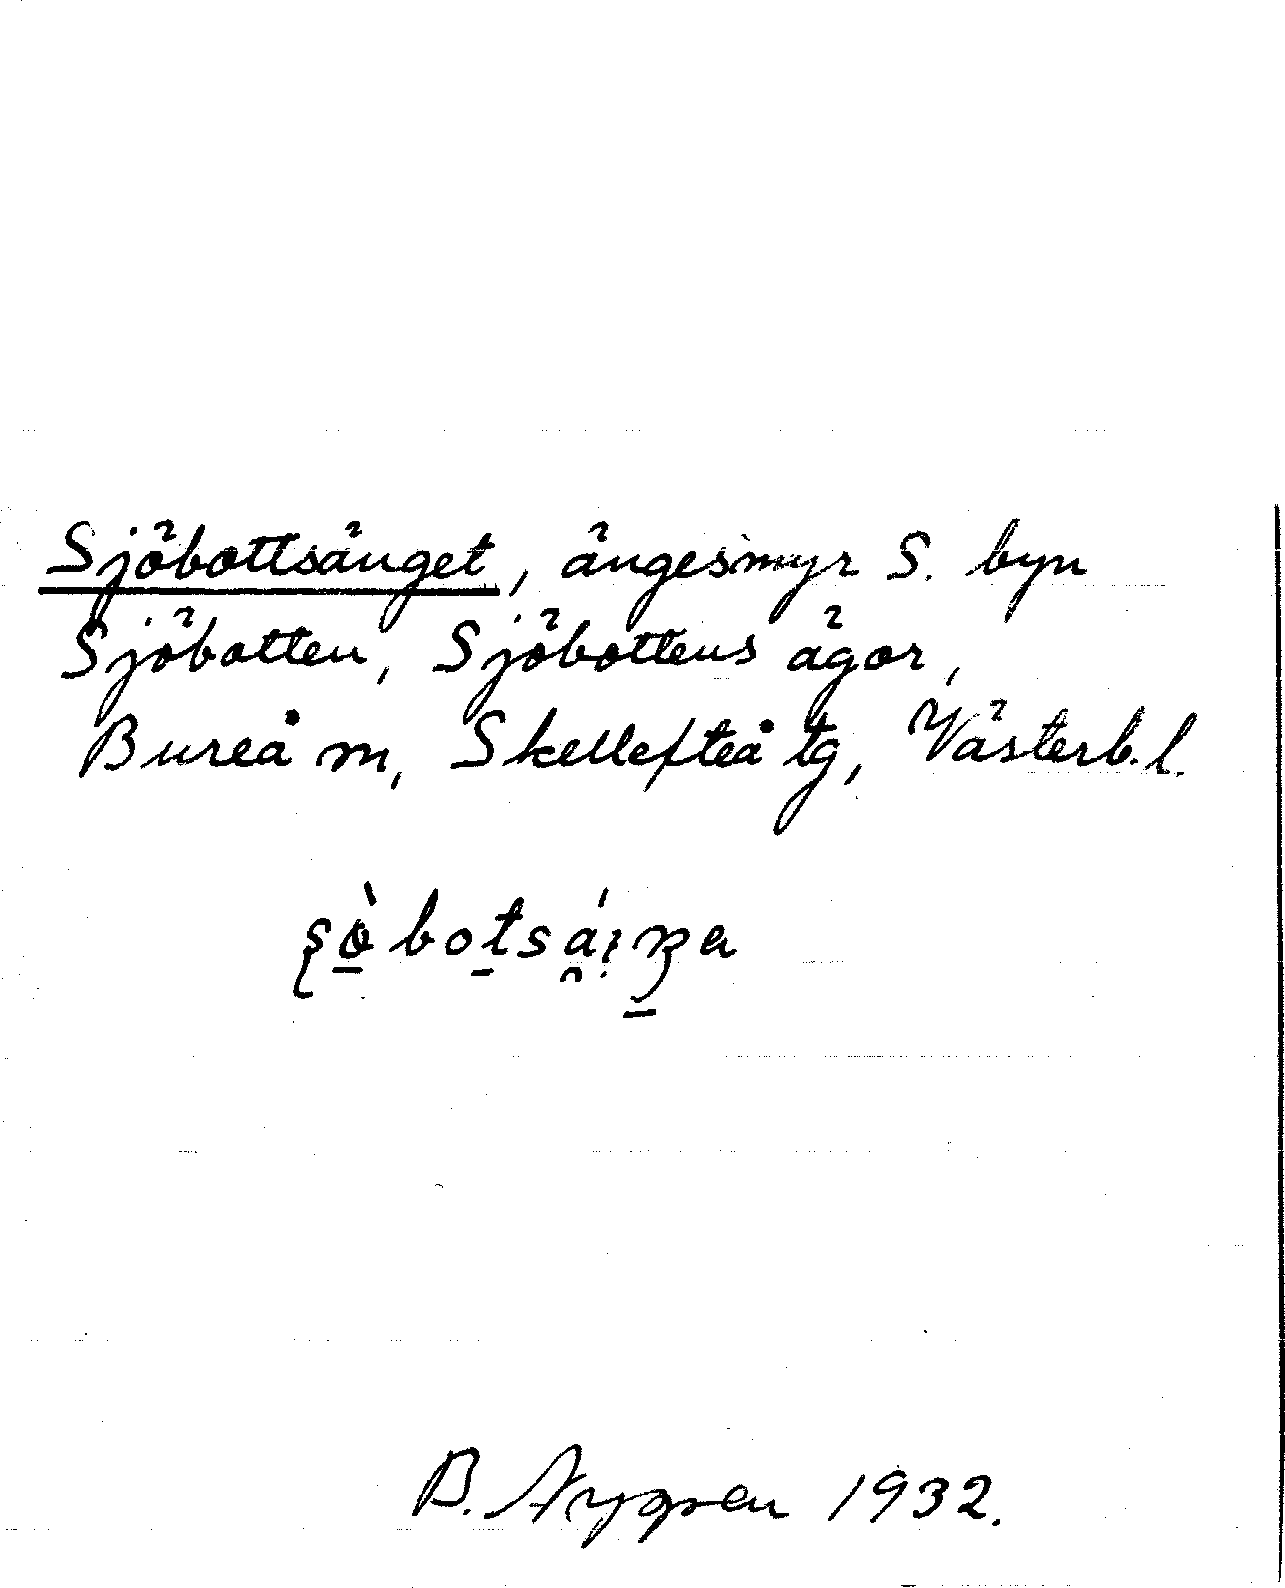 Sjöbottsänget, ängesmyr S. byn
Sjöbotten, Sjöbottens ägor,
Bureå m, Skellefteå tg, Västerb. l.
B. Nygren 1932.